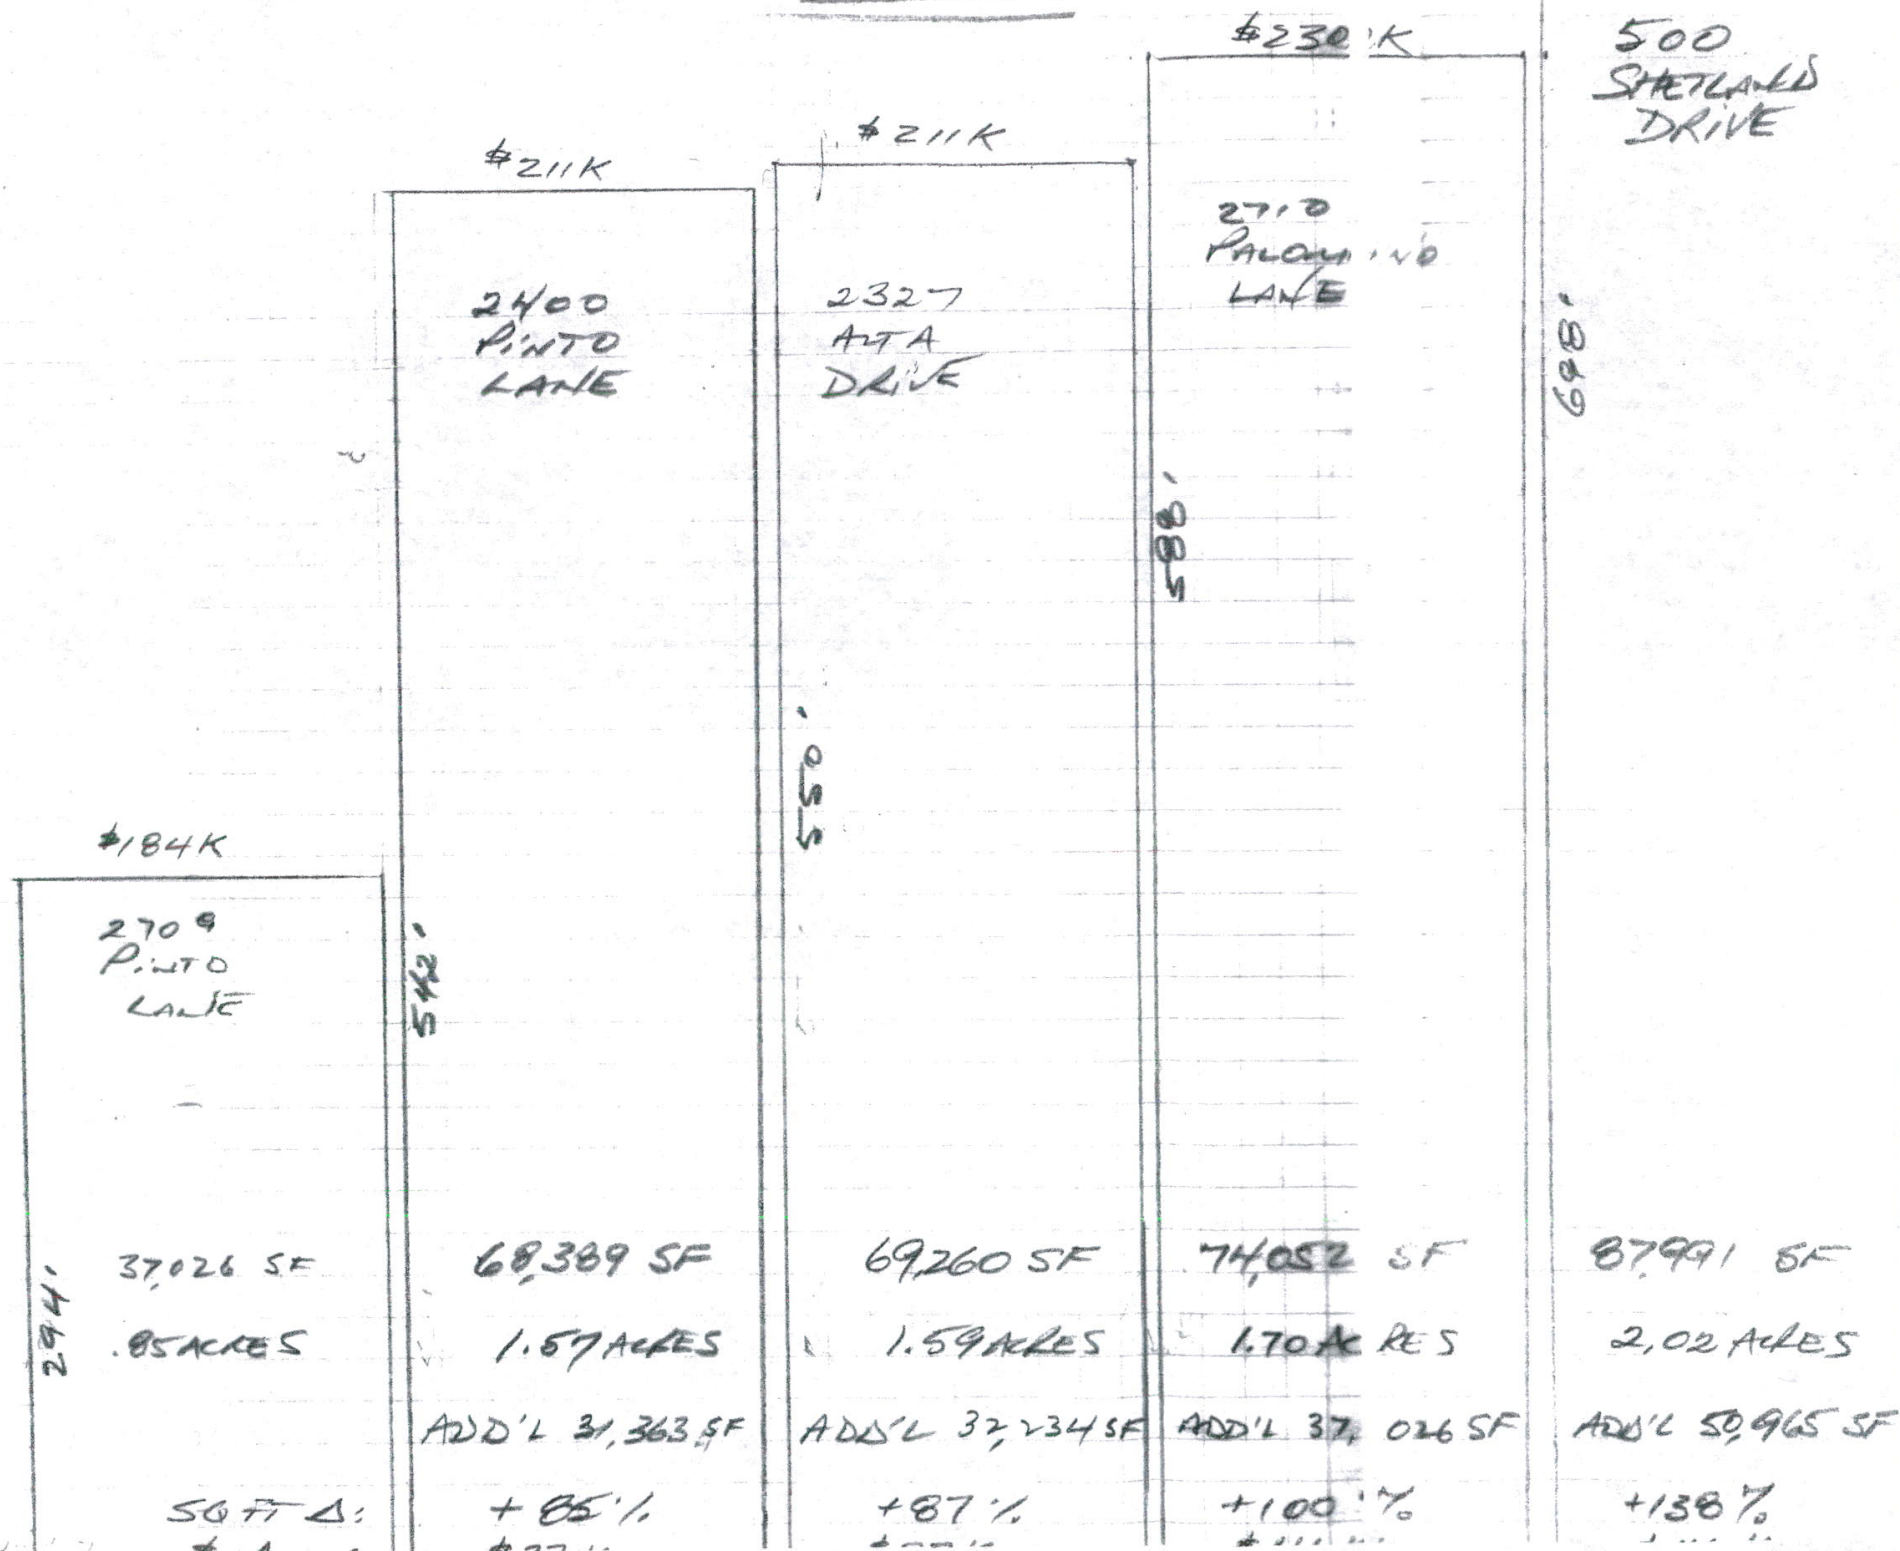 $184K
2709
PINTO
LANE
294'
37,026 SF
.85 ACRES
SQ FT Δ:
$211K
2400
PINTO
LANE
542'
68,389 SF
1.57 ACRES
ADD'L 31,363 SF
+85%
$211K
2327
ALTA
DRIVE
550'
69,260 SF
1.59 ACRES
ADD'L 32,234 SF
+87%
$230K
2710
PALOMINO
LANE
588'
74,052 SF
1.70 ACRES
ADD'L 37,026 SF
+100%
500
SHETLAND
DRIVE
698'
87,991 SF
2.02 ACRES
ADD'L 50,965 SF
+138%